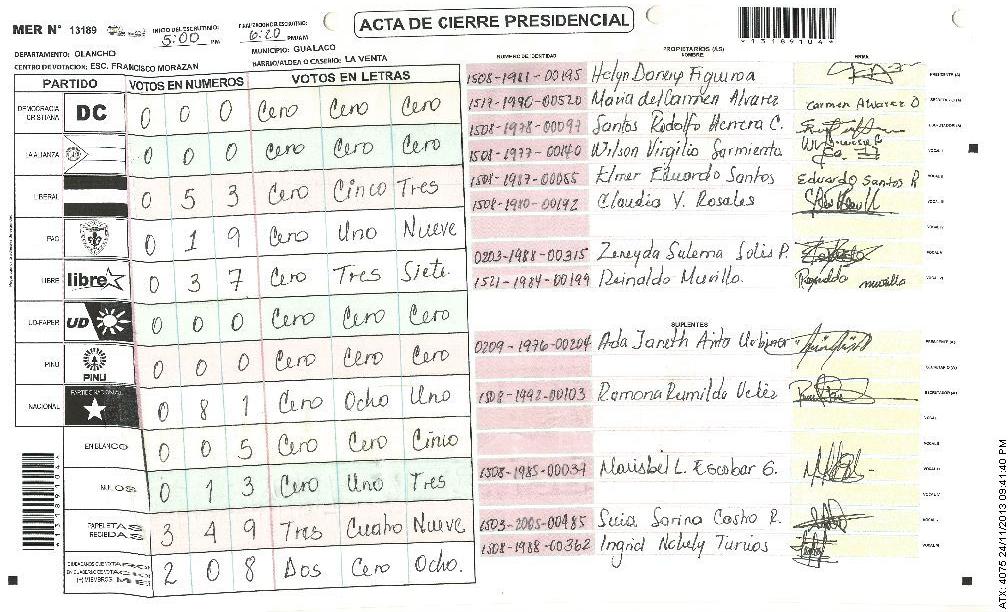 MER N° 13189
INICIO DEL ESCRUTINIO: 5:00 PM
FINALIZACION DEL ESCRUTINIO: 6:20 PM/AM
ACTA DE CIERRE PRESIDENCIAL
*13189104*
DEPARTAMENTO: OLANCHO
MUNICIPIO: GUALACO
CENTRO DE VOTACION: ESC. FRANCISCO MORAZAN
BARRIO/ALDEA O CASERIO: LA VENTA
PARTIDO VOTOS EN NUMEROS VOTOS EN LETRAS
DEMOCRACIA CRISTIANA DC 0 0 0 Cero Cero Cero
ALIANZA 0 0 0 Cero Cero Cero
LIBERAL 0 5 3 Cero Cinco Tres
PAC 0 1 9 Cero Uno Nueve
LIBRE libre 0 3 7 Cero Tres Siete
UD-FAPER UD 0 0 0 Cero Cero Cero
PINU PINU 0 0 0 Cero Cero Cero
NACIONAL PARTIDO NACIONAL 0 8 1 Cero Ocho Uno
EN BLANCO 0 0 5 Cero Cero Cinco
NULOS 0 1 3 Cero Uno Tres
PAPELETAS RECIBIDAS 3 4 9 Tres Cuatro Nueve
(+) MIEMBROS MER 2 0 8 Dos Cero Ocho.
*13189104*
PROPIETARIOS (AS)
NUMERO DE IDENTIDAD NOMBRE FIRMA
1508-1981-00195 Helyn Doreny Figueroa PRESIDENTE (A)
1517-1990-00520 Maria del Carmen Alvarez Carmen Alvarez O SECRETARIO (A)
1508-1978-00097 Santos Rodolfo Herrera C. ESCRUTADOR (A)
1508-1977-00140 Wilson Virgilio Sarmiento VOCAL I
1508-1987-00085 Elmer Eduardo Santos Eduardo Santos R VOCAL II
1508-1980-00192 Claudia Y. Rosales VOCAL III
0203-1988-00315 Zeneyda Sulema Solis P. VOCAL V
1521-1984-00199 Reinaldo Murillo. Reynaldo murillo VOCAL VI
SUPLENTES
0209-1976-00204 Ada Janeth Anto Urbina PRESIDENTE (A)
SECRETARIO (A)
1508-1992-00103 Ramona Rumilda Velez ESCRUTADOR (A)
VOCAL I
VOCAL II
1508-1985-00034 Marisbel L. Escobar G. VOCAL III
VOCAL IV
1503-2005-00485 Suia Sarina Castro R. VOCAL V
1508-1988-00362 Ingrid Nohely Turcios VOCAL VI
ATX: 4075 24/11/2013 09:41:40 PM